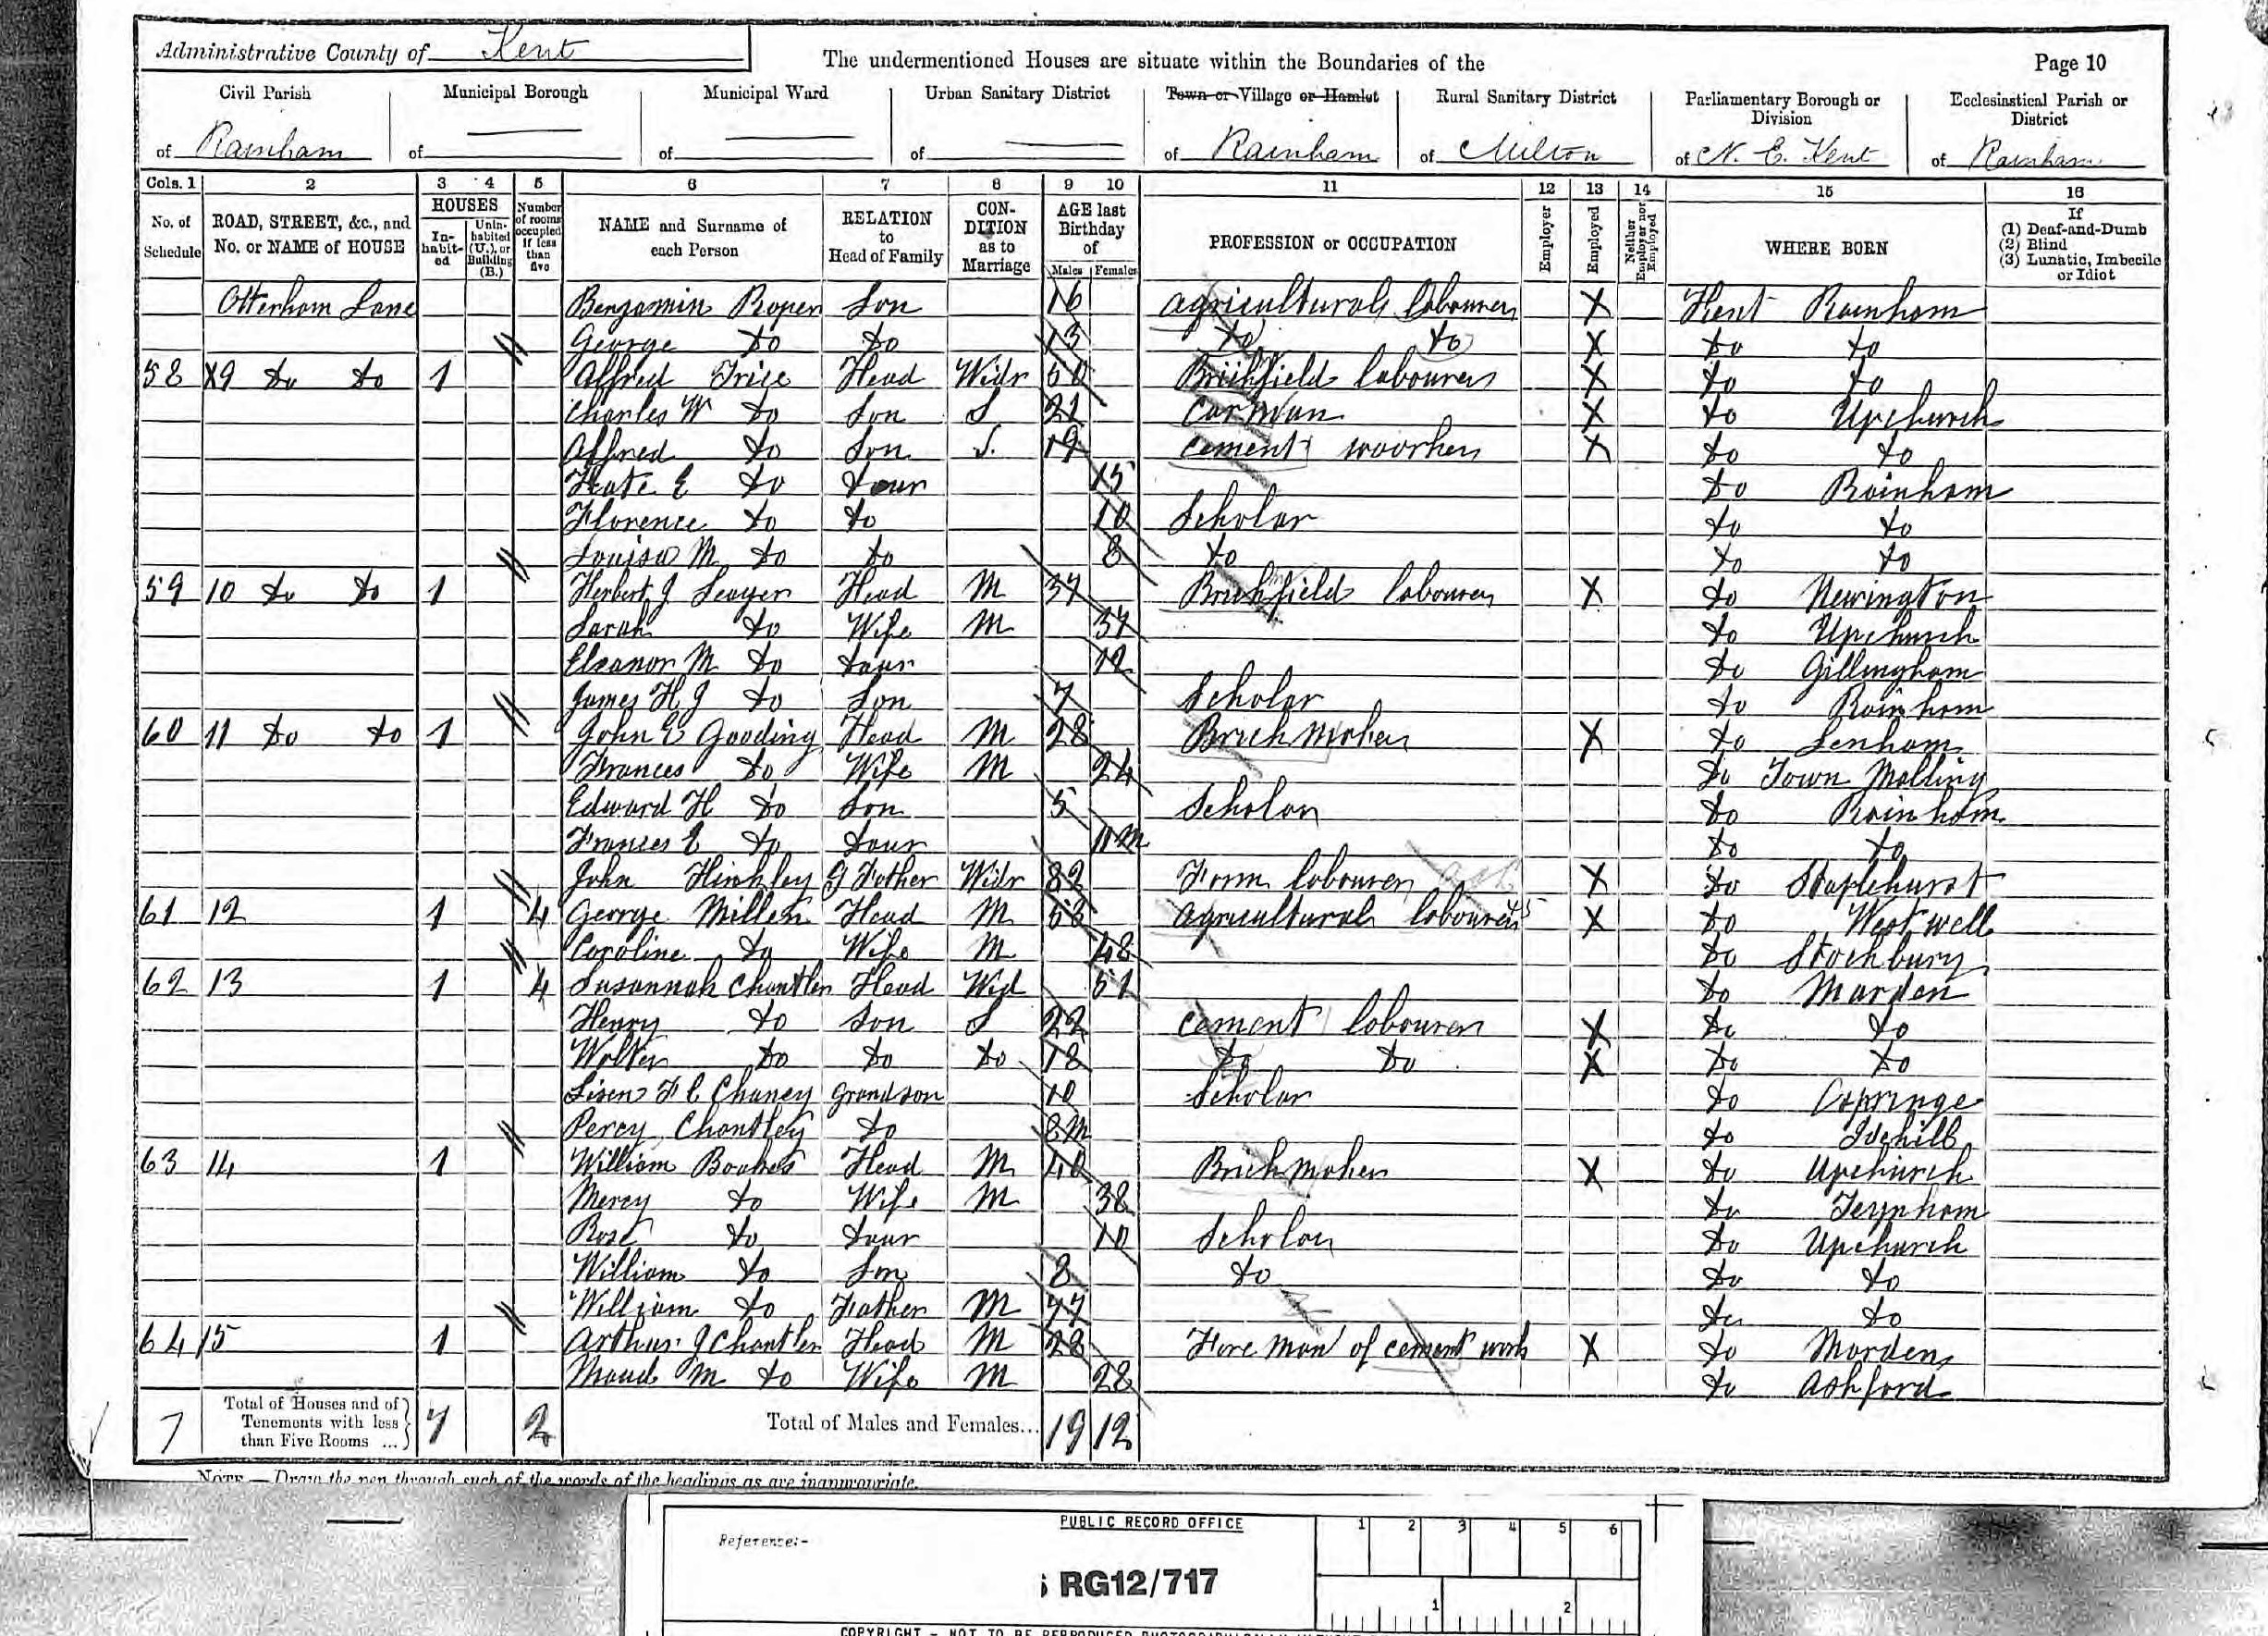 Administrative County of Kent
The undermentioned Houses are situate within the Boundaries of the
Page 10
Civil Parish Municipal Borough Municipal Ward Urban Sanitary District Town or Village or Hamlet Rural Sanitary District Parliamentary Borough or Division Ecclesiastical Parish or District
of Rainham of of of of Rainham of Milton of N. E. Kent of Rainham
Cols. 1 2 3 4 5 6 7 8 9 10 11 12 13 14 15 16
No. of Schedule ROAD, STREET, &c., and No. or NAME of HOUSE HOUSES Inhabited Uninhabited (U.), or Building (B.) Number of rooms occupied if less than five NAME and Surname of each Person RELATION to Head of Family CONDITION as to Marriage AGE last Birthday of Males Females PROFESSION or OCCUPATION Employer Employed Neither Employer nor Employed WHERE BORN If (1) Deaf-and-Dumb (2) Blind (3) Lunatic, Imbecile or Idiot
Otterham Lane Benjamin Roper Son 16 agricultural labourer X Kent Rainham
George do do 13 do do X do do
58 X9 do do 1 Alfred Trice Head Widr 50 Brickfield labourer X do do
Charles W do Son S 21 Carman X do Upchurch
Alfred do Son S. 19 cement woorker X do do
Kate E do Daur 15 do Rainham
Florence do do 10 Scholar do do
Louisa M do do 8 do do do
59 10 do do 1 Herbert J Seager Head M 37 Brickfield labourer X do Newington
Sarah do Wife M 37 do Upchurch
Eleanor M do Daur 12 do Gillingham
James H J do Son 7 Scholar do Rainham
60 11 do do 1 John E Gooding Head M 28 Brick Maker X do Lenham
Frances do Wife M 24 do Town Malling
Edward H do Son 5 Scholar do Rainham
Frances E do Daur 11m do do
John Hinkley G Father Widr 82 Farm labourer X do Staplehurst
61 12 1 4 George Millen Head M 53 agricultural labourer X do Westwell
Caroline do Wife M 48 do Stockbury
62 13 1 4 Susannah Chantler Head Wid 51 do Marden
Henry do Son S 22 cement labourer X do do
Walter do do do 18 do do X do do
F C Chaney Grandson 10 Scholar do Ospringe
Percy Chantley do 8m do Idehill
63 14 1 William Boakes Head M 40 Brick maker X do Upchurch
Mercy do Wife M 38 do Teynham
Rose do Daur 10 Scholar do Upchurch
William do Son 8 do do do
William do Father M 77 do do
64 15 1 Arthur J Chantler Head M 28 Fore man of cement work X do Marden
Maud M do Wife M 28 do Ashford
7 Total of Houses and of Tenements with less than Five Rooms ... 7 2 Total of Males and Females... 19 12
NOTE.—Draw the pen through such of the words of the headings as are inappropriate.
PUBLIC RECORD OFFICE 1 2 3 4 5 6
Reference:-
RG12/717
1 2
COPYRIGHT - NOT TO BE REPRODUCED PHOTOGRAPHICALLY WITHOUT